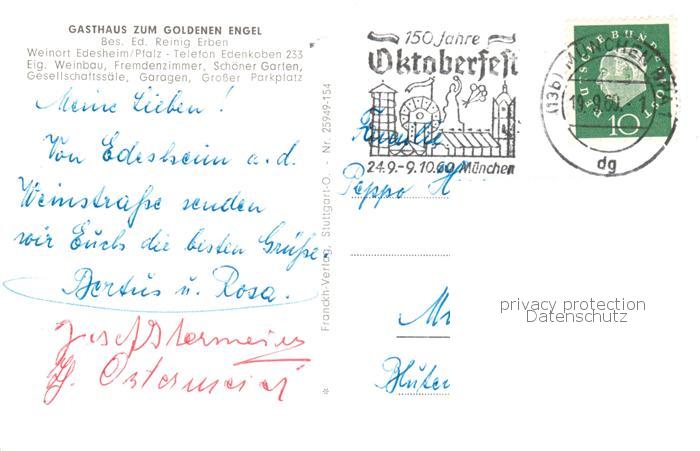 GASTHAUS ZUM GOLDENEN ENGEL
Bes. Ed. Reinig Erben
Weinort Edesheim/Pfalz - Telefon Edenkoben 233
Eig. Weinbau, Fremdenzimmer, Schöner Garten,
Gesellschaftssäle, Garagen, Großer Parkplatz
Meine Lieben!
Von Edesheim a. d.
Weinstraße senden
wir Euch die besten Grüße.
Bertus u. Rosa.
Josef Ostermeier
Ostermeier
Franckh-Verlag, Stuttgart-O. Nr. 25949-154
*
150 Jahre
Oktoberfest
24.9.-9.10.60 München
(13b) MÜNCHEN
19.9.60. - 1
dg
DEUTSCHE BUNDESPOST
10
Familie
Peppo H
privacy protection
Datenschutz